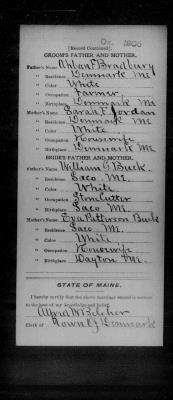 1906
[Record Continued].
GROOM'S FATHER AND MOTHER.
Father's Name F Bradbury
" Residence Denmark Me
" Color White
" Occupation Farmer
" Birthplace Denmark Me
Mother's Name Sarah F Jordan
" Residence Denmark Me
" Color White
" Occupation Housewife
" Birthplace Denmark Me
BRIDE'S FATHER AND MOTHER.
Father's Name William G Buck
" Residence Saco Me.
" Color White
" Occupation Stone Cutter
" Birthplace Saco Me.
Mother's Name Eva Patterson Buck
" Residence Saco Me.
" Color White
" Occupation Housewife
" Birthplace Dayton Me.
STATE OF MAINE.
I hereby certify that the above marriage record is correct
to the best of my knowledge and belief.
Alfred W Belcher
Clerk of Town of Denmark